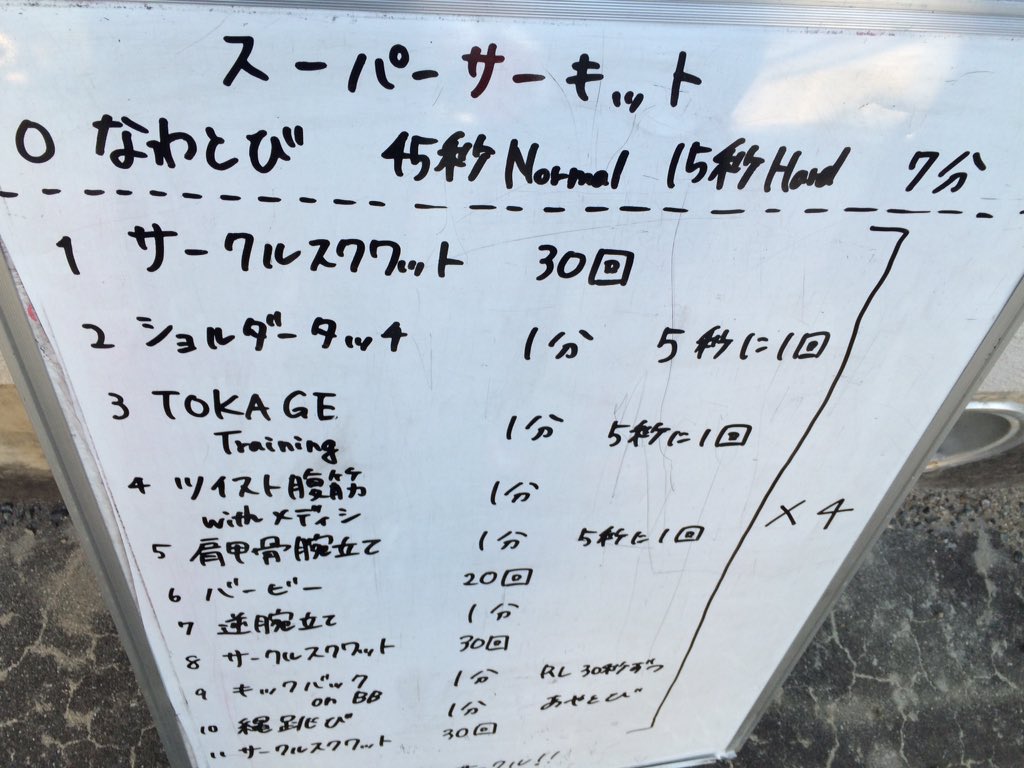 スーパーサーキット
0 なわとび 45秒Normal 15秒Hard 7分
1 サークルスクワット 30回
2 ショルダータッチ 1分 5秒に1回
3 TOKAGE 1分 5秒に1回
Training
4 ツイスト腹筋 1分
with メディシ
5 肩甲骨腕立て 1分 5秒に1回
×4
6 バービー 20回
7 逆腕立て 1分
8 サークルスクワット 30回
9 キックバック 1分 RL 30秒ずつ
on BB
10 縄跳び 1分 あやとび
11 サークルスクワット 30回
サークル!!